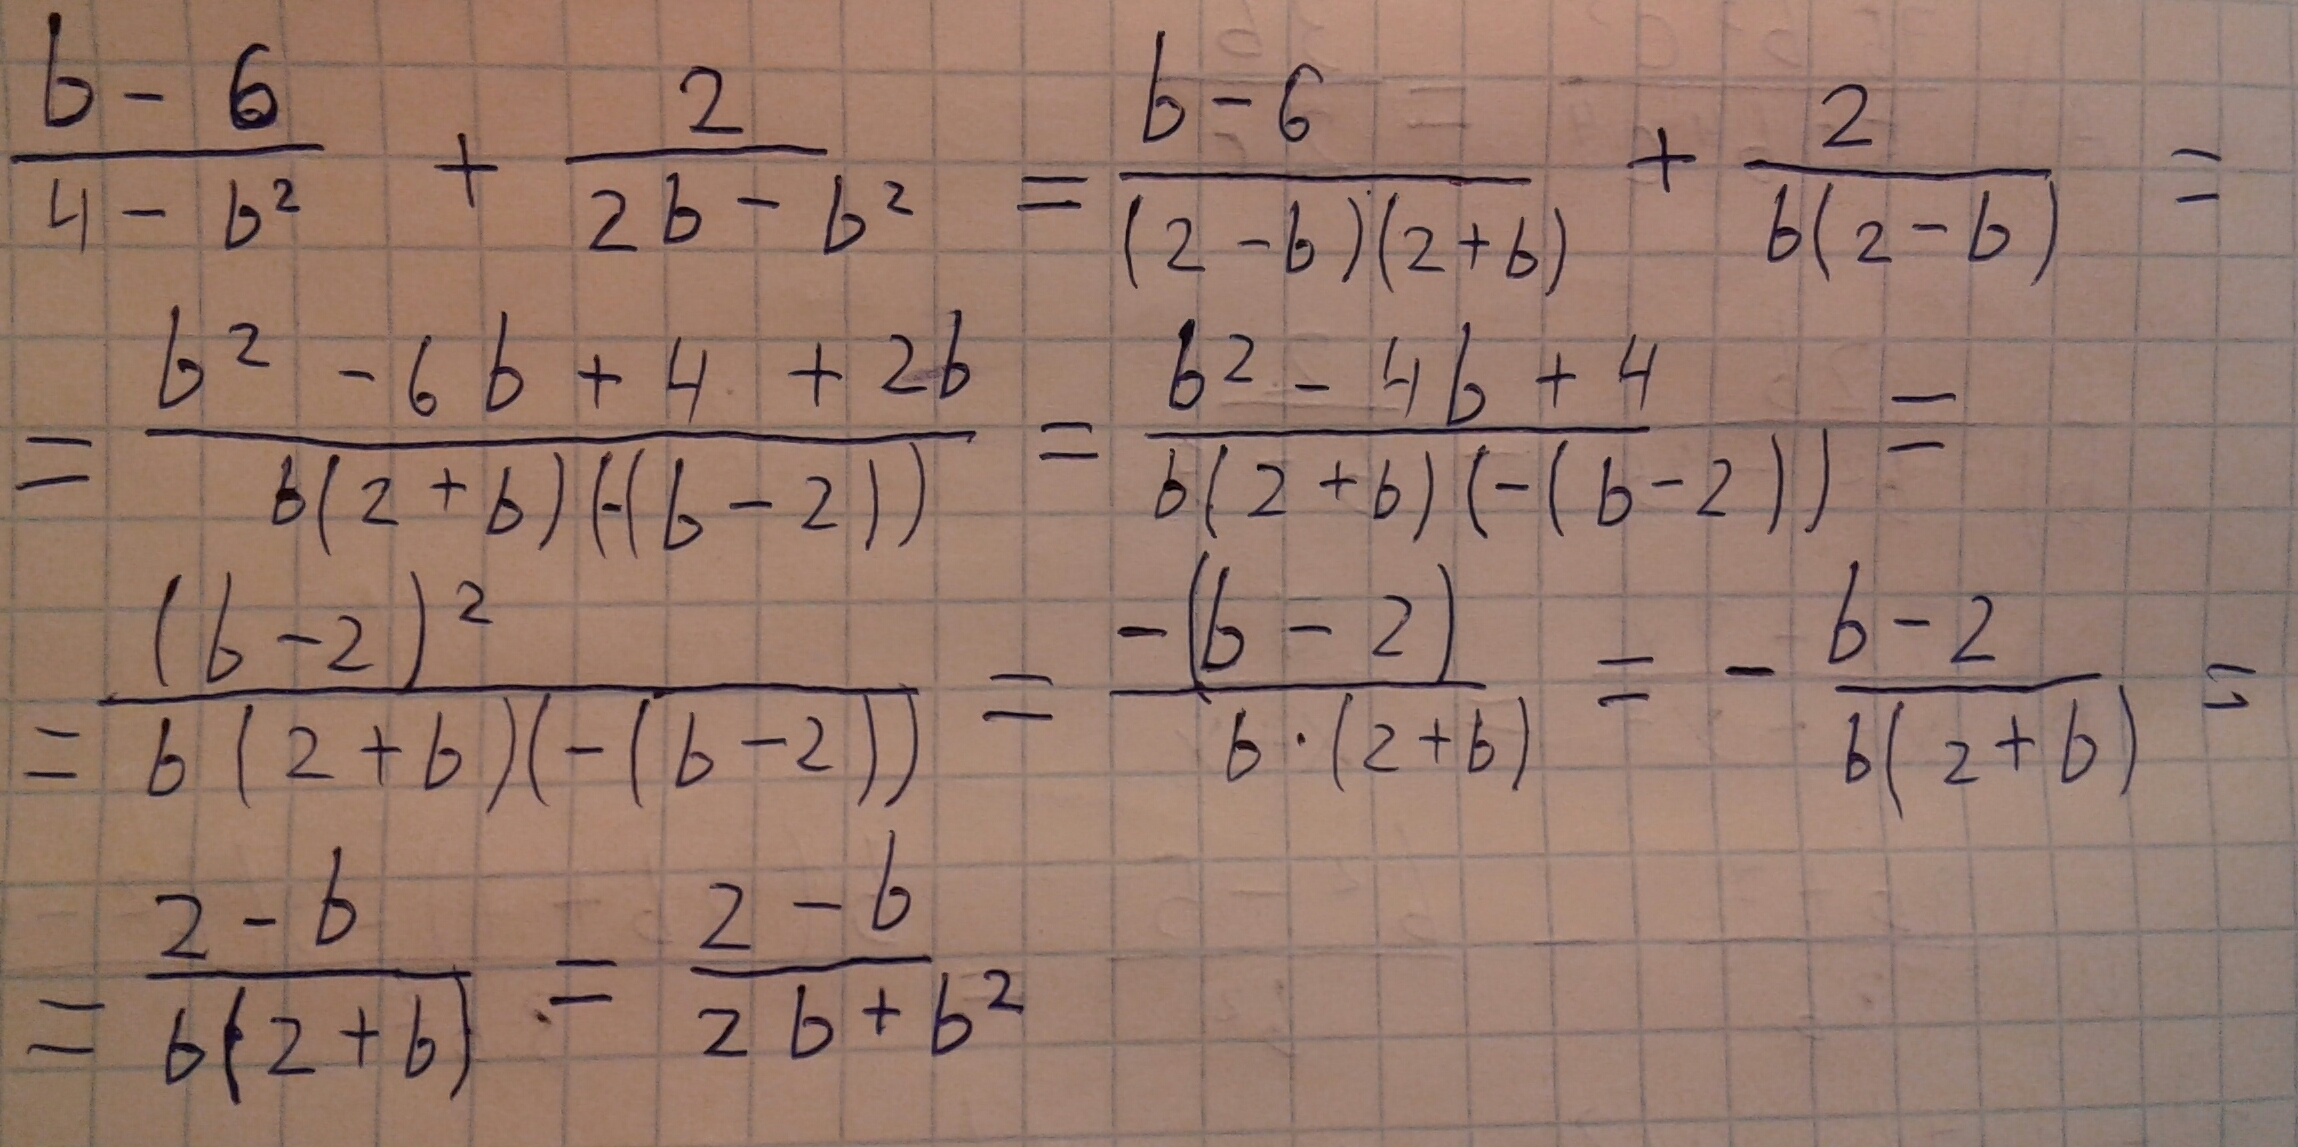 \frac{b-6}{4-b^2} + \frac{2}{2b-b^2} = \frac{b-6}{(2-b)(2+b)} + \frac{2}{b(2-b)} =
= \frac{b^2-6b+4+2b}{b(2+b)(-(b-2))} = \frac{b^2-4b+4}{b(2+b)(-(b-2))} =
= \frac{(b-2)^2}{b(2+b)(-(b-2))} = \frac{-(b-2)}{b \cdot (2+b)} = -\frac{b-2}{b(2+b)} =
= \frac{2-b}{b(2+b)} = \frac{2-b}{2b+b^2}